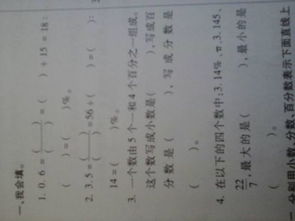 一、我会填。
1. 0.6 = (　)/(　) = (　) ÷ 15 = 18 :
(　) = (　)%。
2. 3.5 = (　)/(　) = 56 ÷ (　) = (　) :
14 = (　)%。
3. 一个数由5个一和4个百分之一组成。
这个数写成小数是(　)，写成百
分数是(　)，写成分数是
(　)。
4. 在以下的四个数中：3.14%、π、3.145、
22/7，最大的是(　)，最小的是
(　)。
分别用小数、分数、百分数表示下面直线上